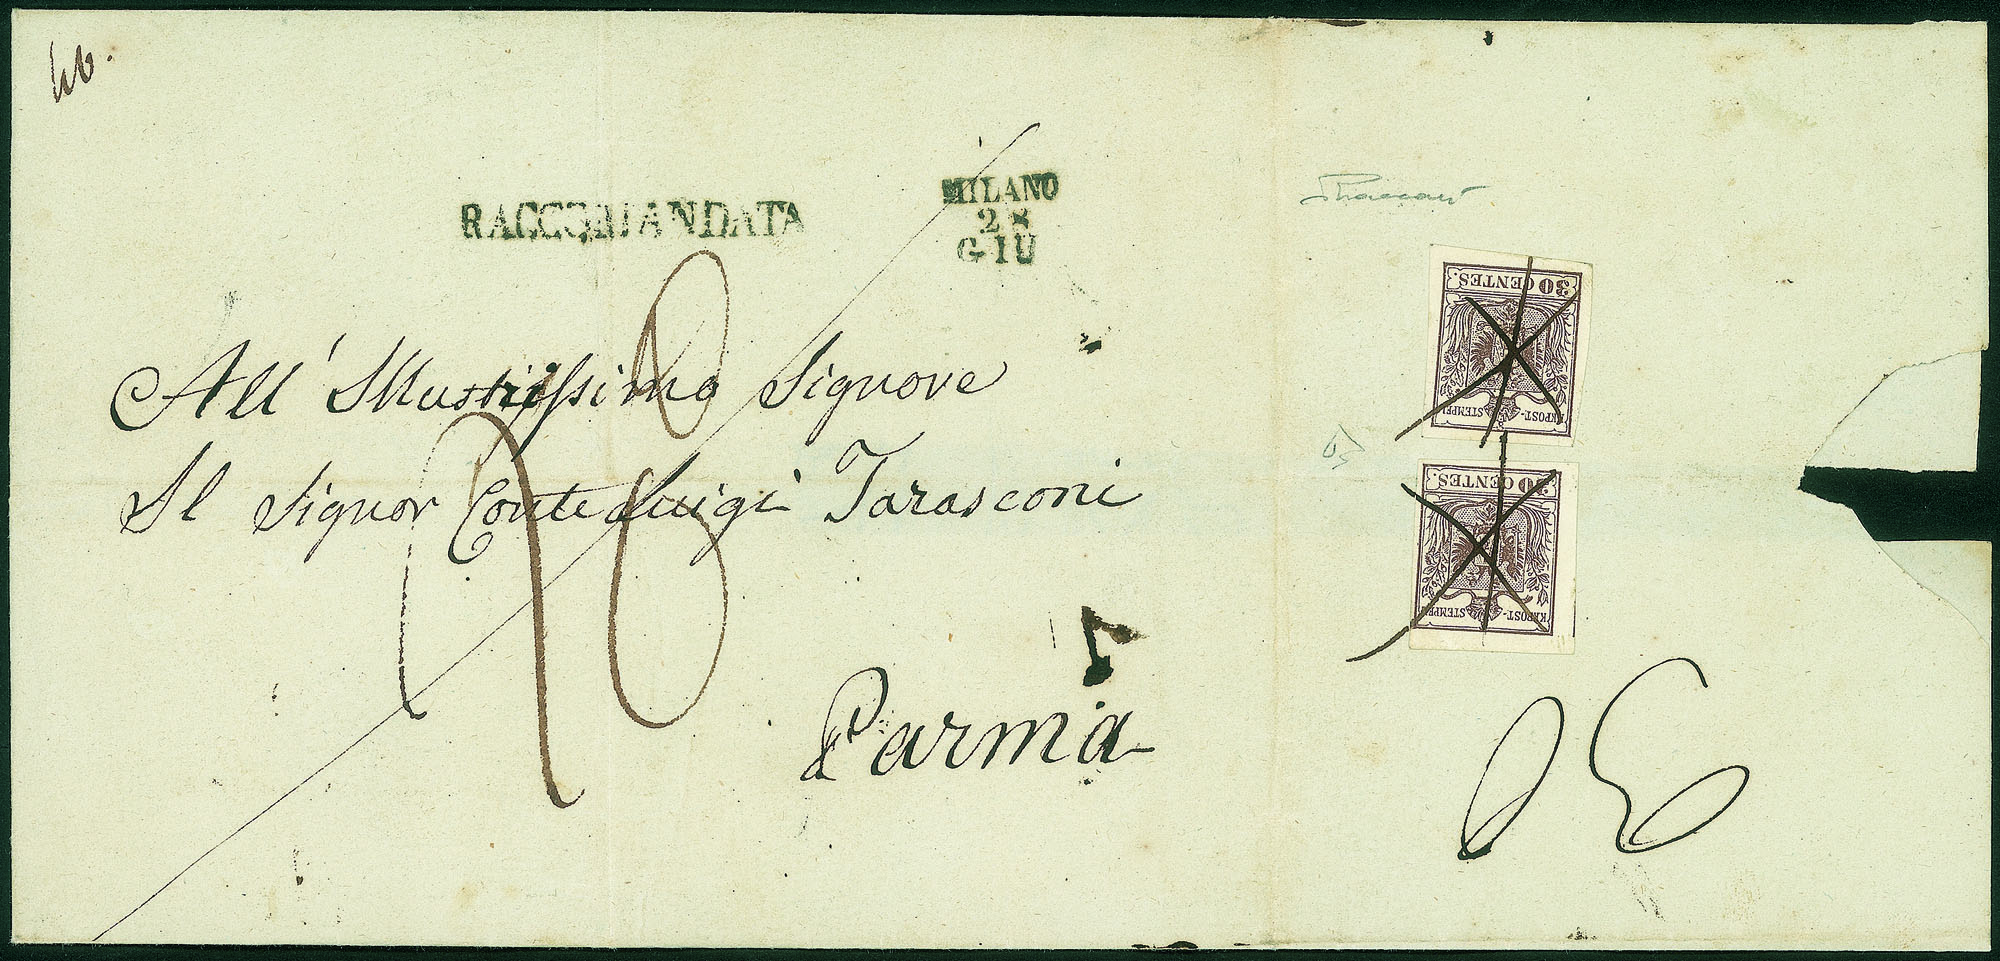 RACCOMANDATA
MILANO
28
GIU
All' Illustrissimo Signore
Il Signor Conte Luigi Tarasconi
Parma
30 CENTES.
KKPOST-STEMPEL
30 CENTES.
KKPOST-STEMPEL